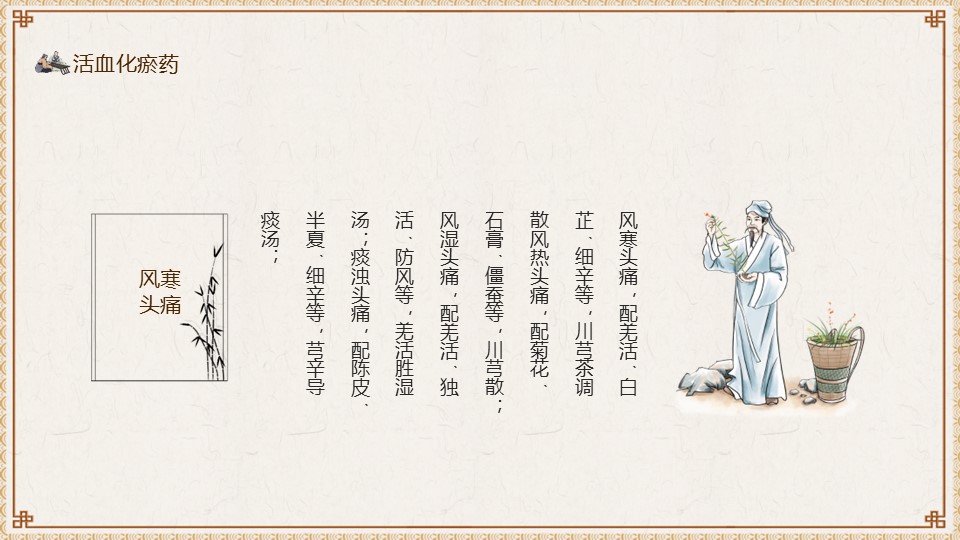 活血化瘀药
风寒头痛，配羌活、白
芷、细辛等，川芎茶调
散风热头痛，配菊花、
石膏、僵蚕等，川芎散；
风湿头痛，配羌活、独
活、防风等，羌活胜湿
汤；痰浊头痛，配陈皮、
半夏、细辛等，芎辛导
痰汤；
风寒
头痛